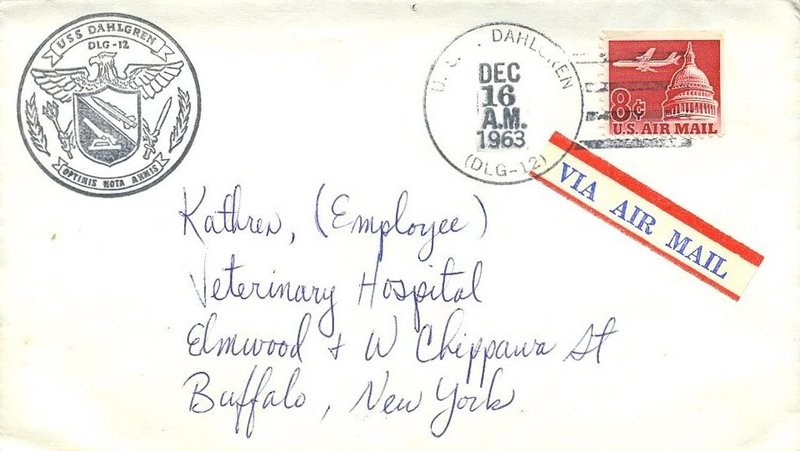 USS DAHLGREN
DLG-12
OPTIMIS NOTA ARMIS
U. S. DAHLGREN
DEC
16
A.M.
1963
(DLG-12)
8¢
U.S. AIR MAIL
VIA AIR MAIL
Kathren, (Employee)
Veterinary Hospital
Elmwood + W Chippawa St
Buffalo, New York